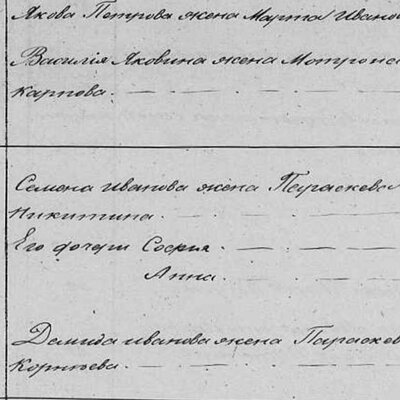 Якова Петрова жена Марта Ивано
Василія Яковина жена Мотрона
Карпова.
Семена Иванова жена Параскева
Никитина.
Его дочери София.
Анна.
Демида Иванова жена Параскев
Корнѣева.